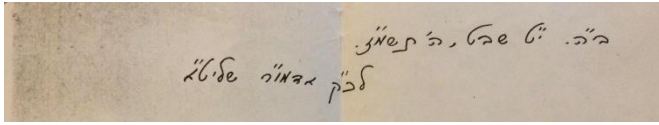 ב"ה. י"ט שבט, ה'תשמ"ז.
לכ"ק אדמו"ר שליט"א